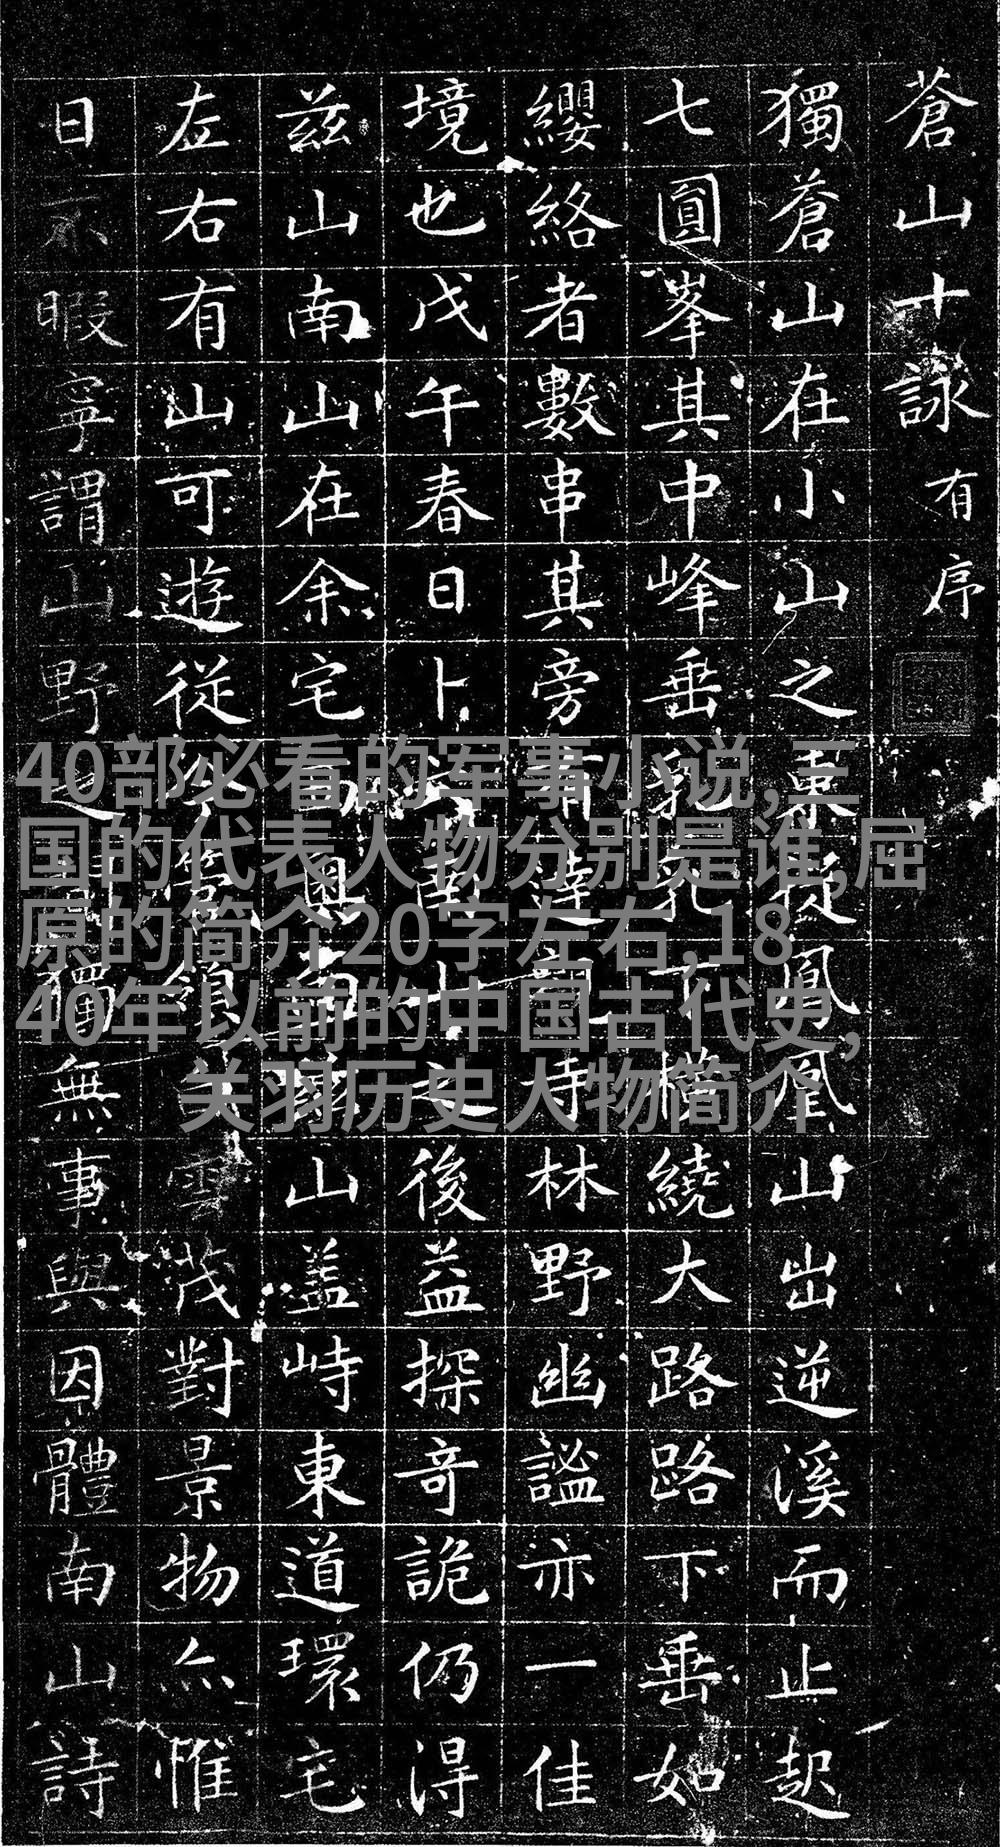 蒼山十詠 有序
獨蒼山在小山之東從鳳凰山出逆溪而止起
七圓峯其中峰垂乳下橫繞大路路下垂如
纓絡者數串其旁有達寺林野幽謐亦一佳
境也戊午春日卜山之後益探奇詭仍得
茲山南山在余宅面與南山盖峙東道環宅
左右有山可遊從領雲茂對景物亦惟
日不暇寧謂山野之獨無事與因體南山詩
40部必看的军事小说,三
国的代表人物分别是谁,屈
原的简介20字左右,18
40年以前的中国古代史,
关羽历史人物简介